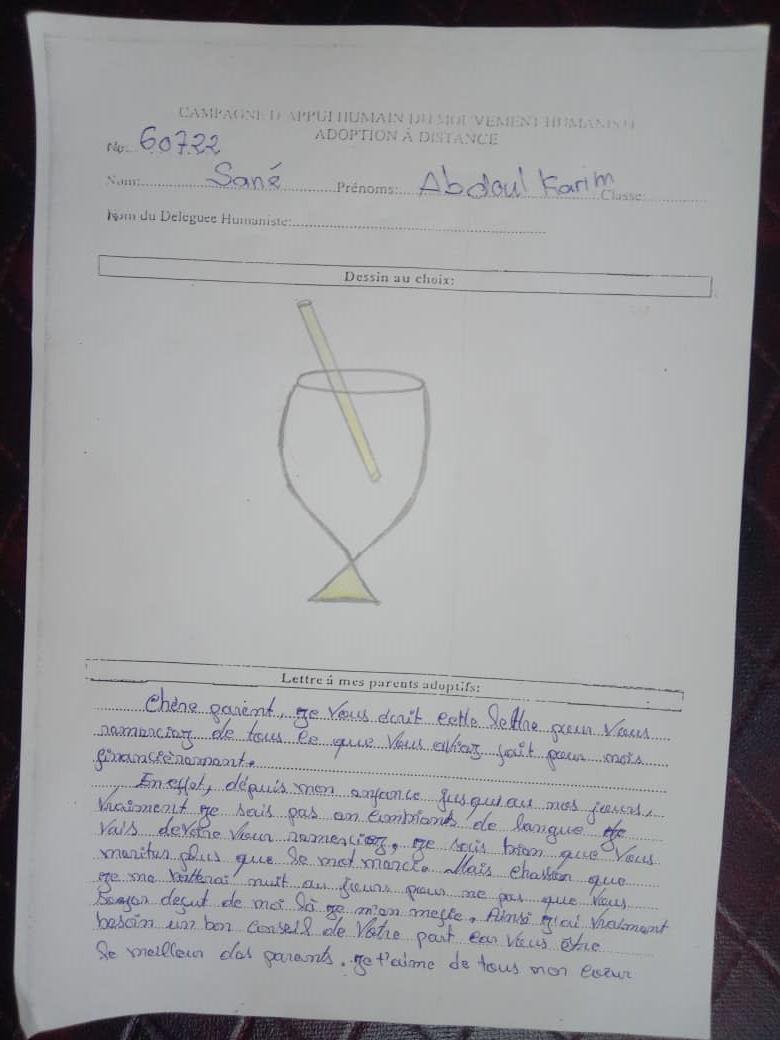 CAMPAGNE D'APPUI HUMAIN DU MOUVEMENT HUMANISTE
ADOPTION À DISTANCE
No: 60722
Nom: Sané Prénoms: Abdoul Karim Classe:
Nom du Deleguee Humaniste:
Dessin au choix:
Lettre á mes parents adoptifs:
Chère parent, je vous écrit cette lettre pour vous
remerciez de tous ce que vous aviez fait pour mois
financièrement.
En effet, dépuis mon enfance jusqu'au nos jours,
vraiment je sais pas en combiants de langue je
vais devoire vour remerciez, je sais bien que vous
meritez plus que le mot merci. Mais que
je me batterai nuit au jours pour ne pas que vous
deçut de moi là je m'en mefie. Ainsi j'ai vraiment
besoin un bon conseil de votre part car vous être
le meilleur des parents. je t'aime de tous mon coeur